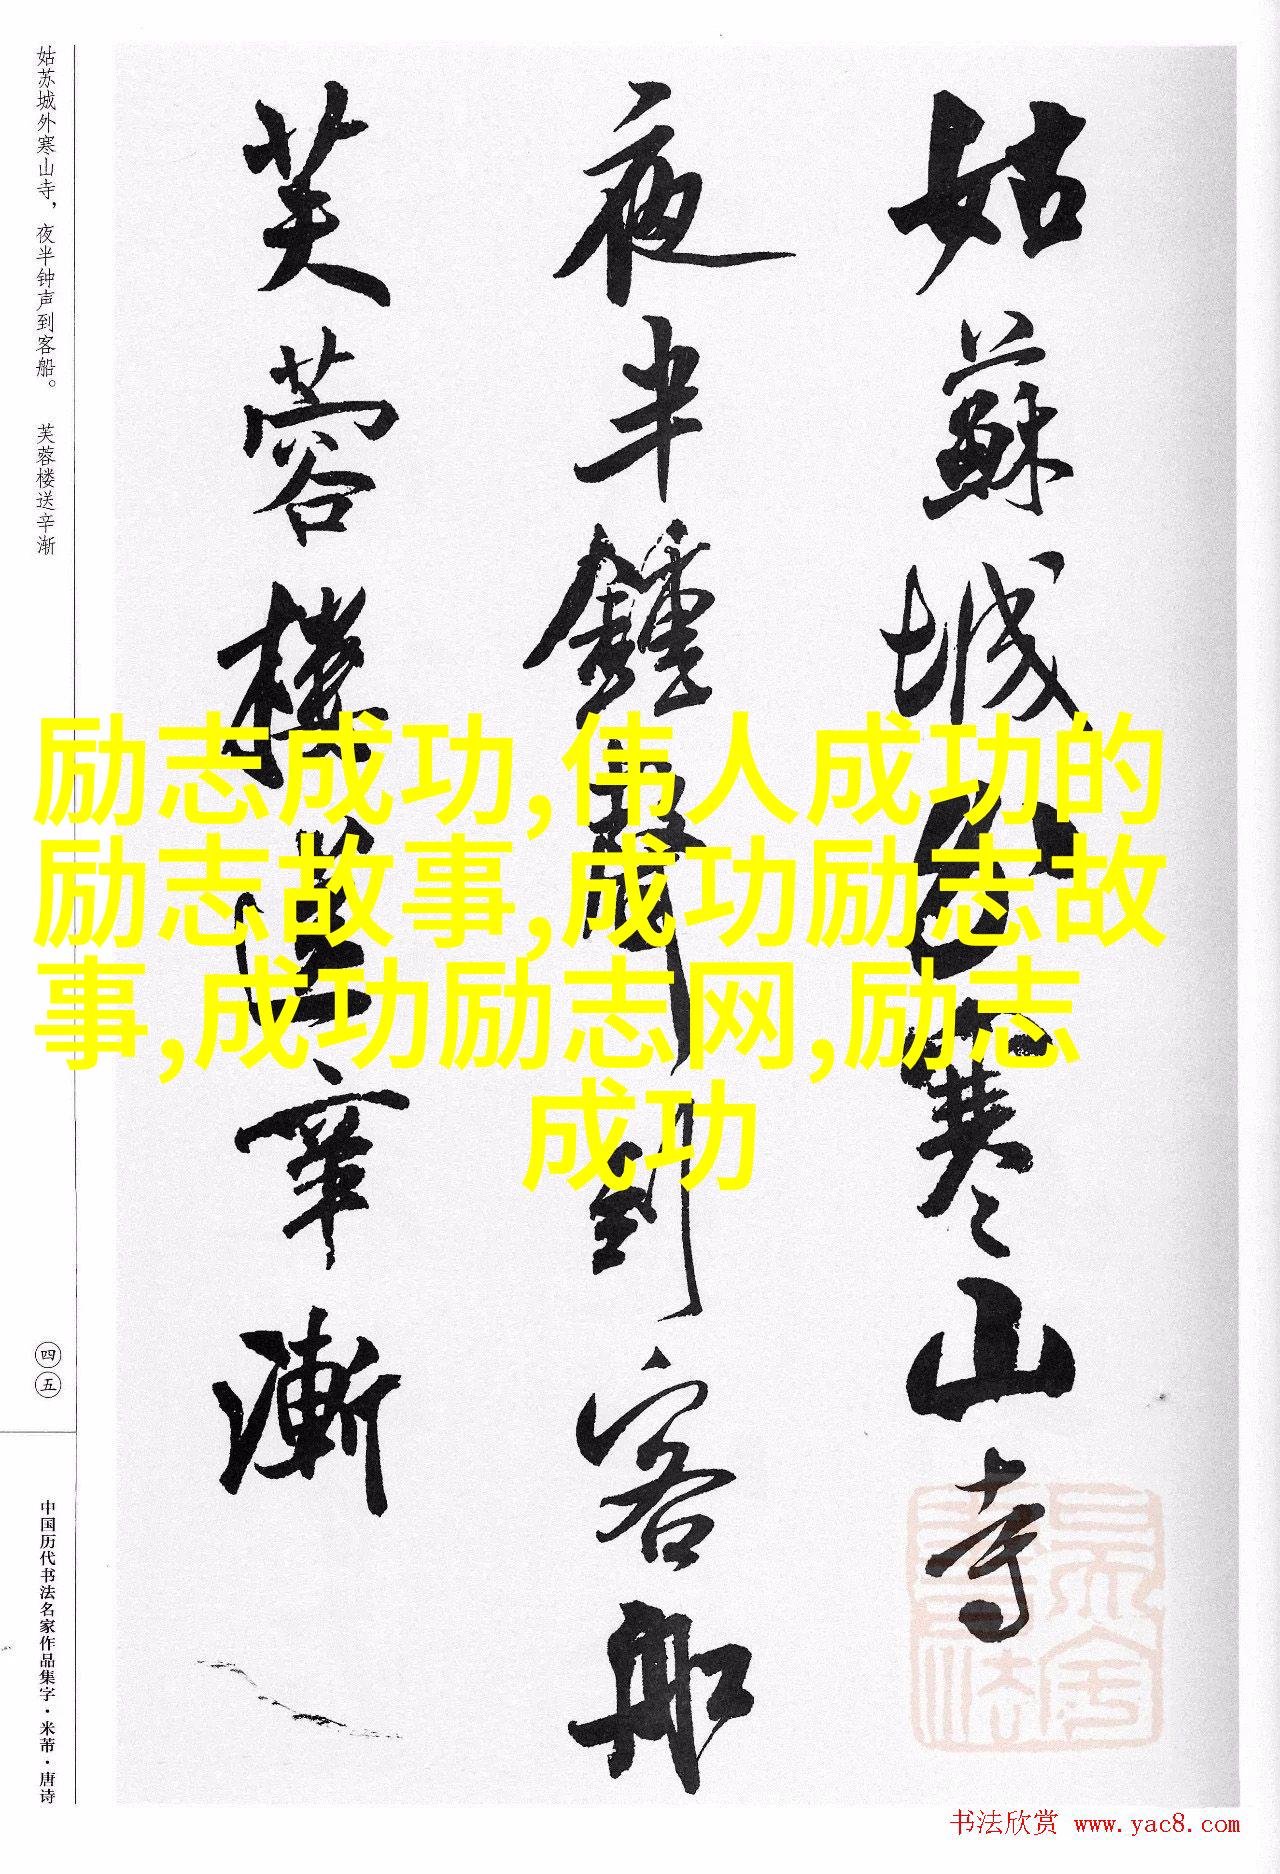 姑蘇城外寒山寺
夜半鍾聲到客船
芙蓉樓送辛漸
姑苏城外寒山寺，夜半钟声到客船。 芙蓉楼送辛渐
四五
中国历代书法名家作品集字·米芾·唐诗
励志成功,伟人成功的
励志故事,成功励志故
事,成功励志网,励志
成功
书法欣赏 www.yac8.com